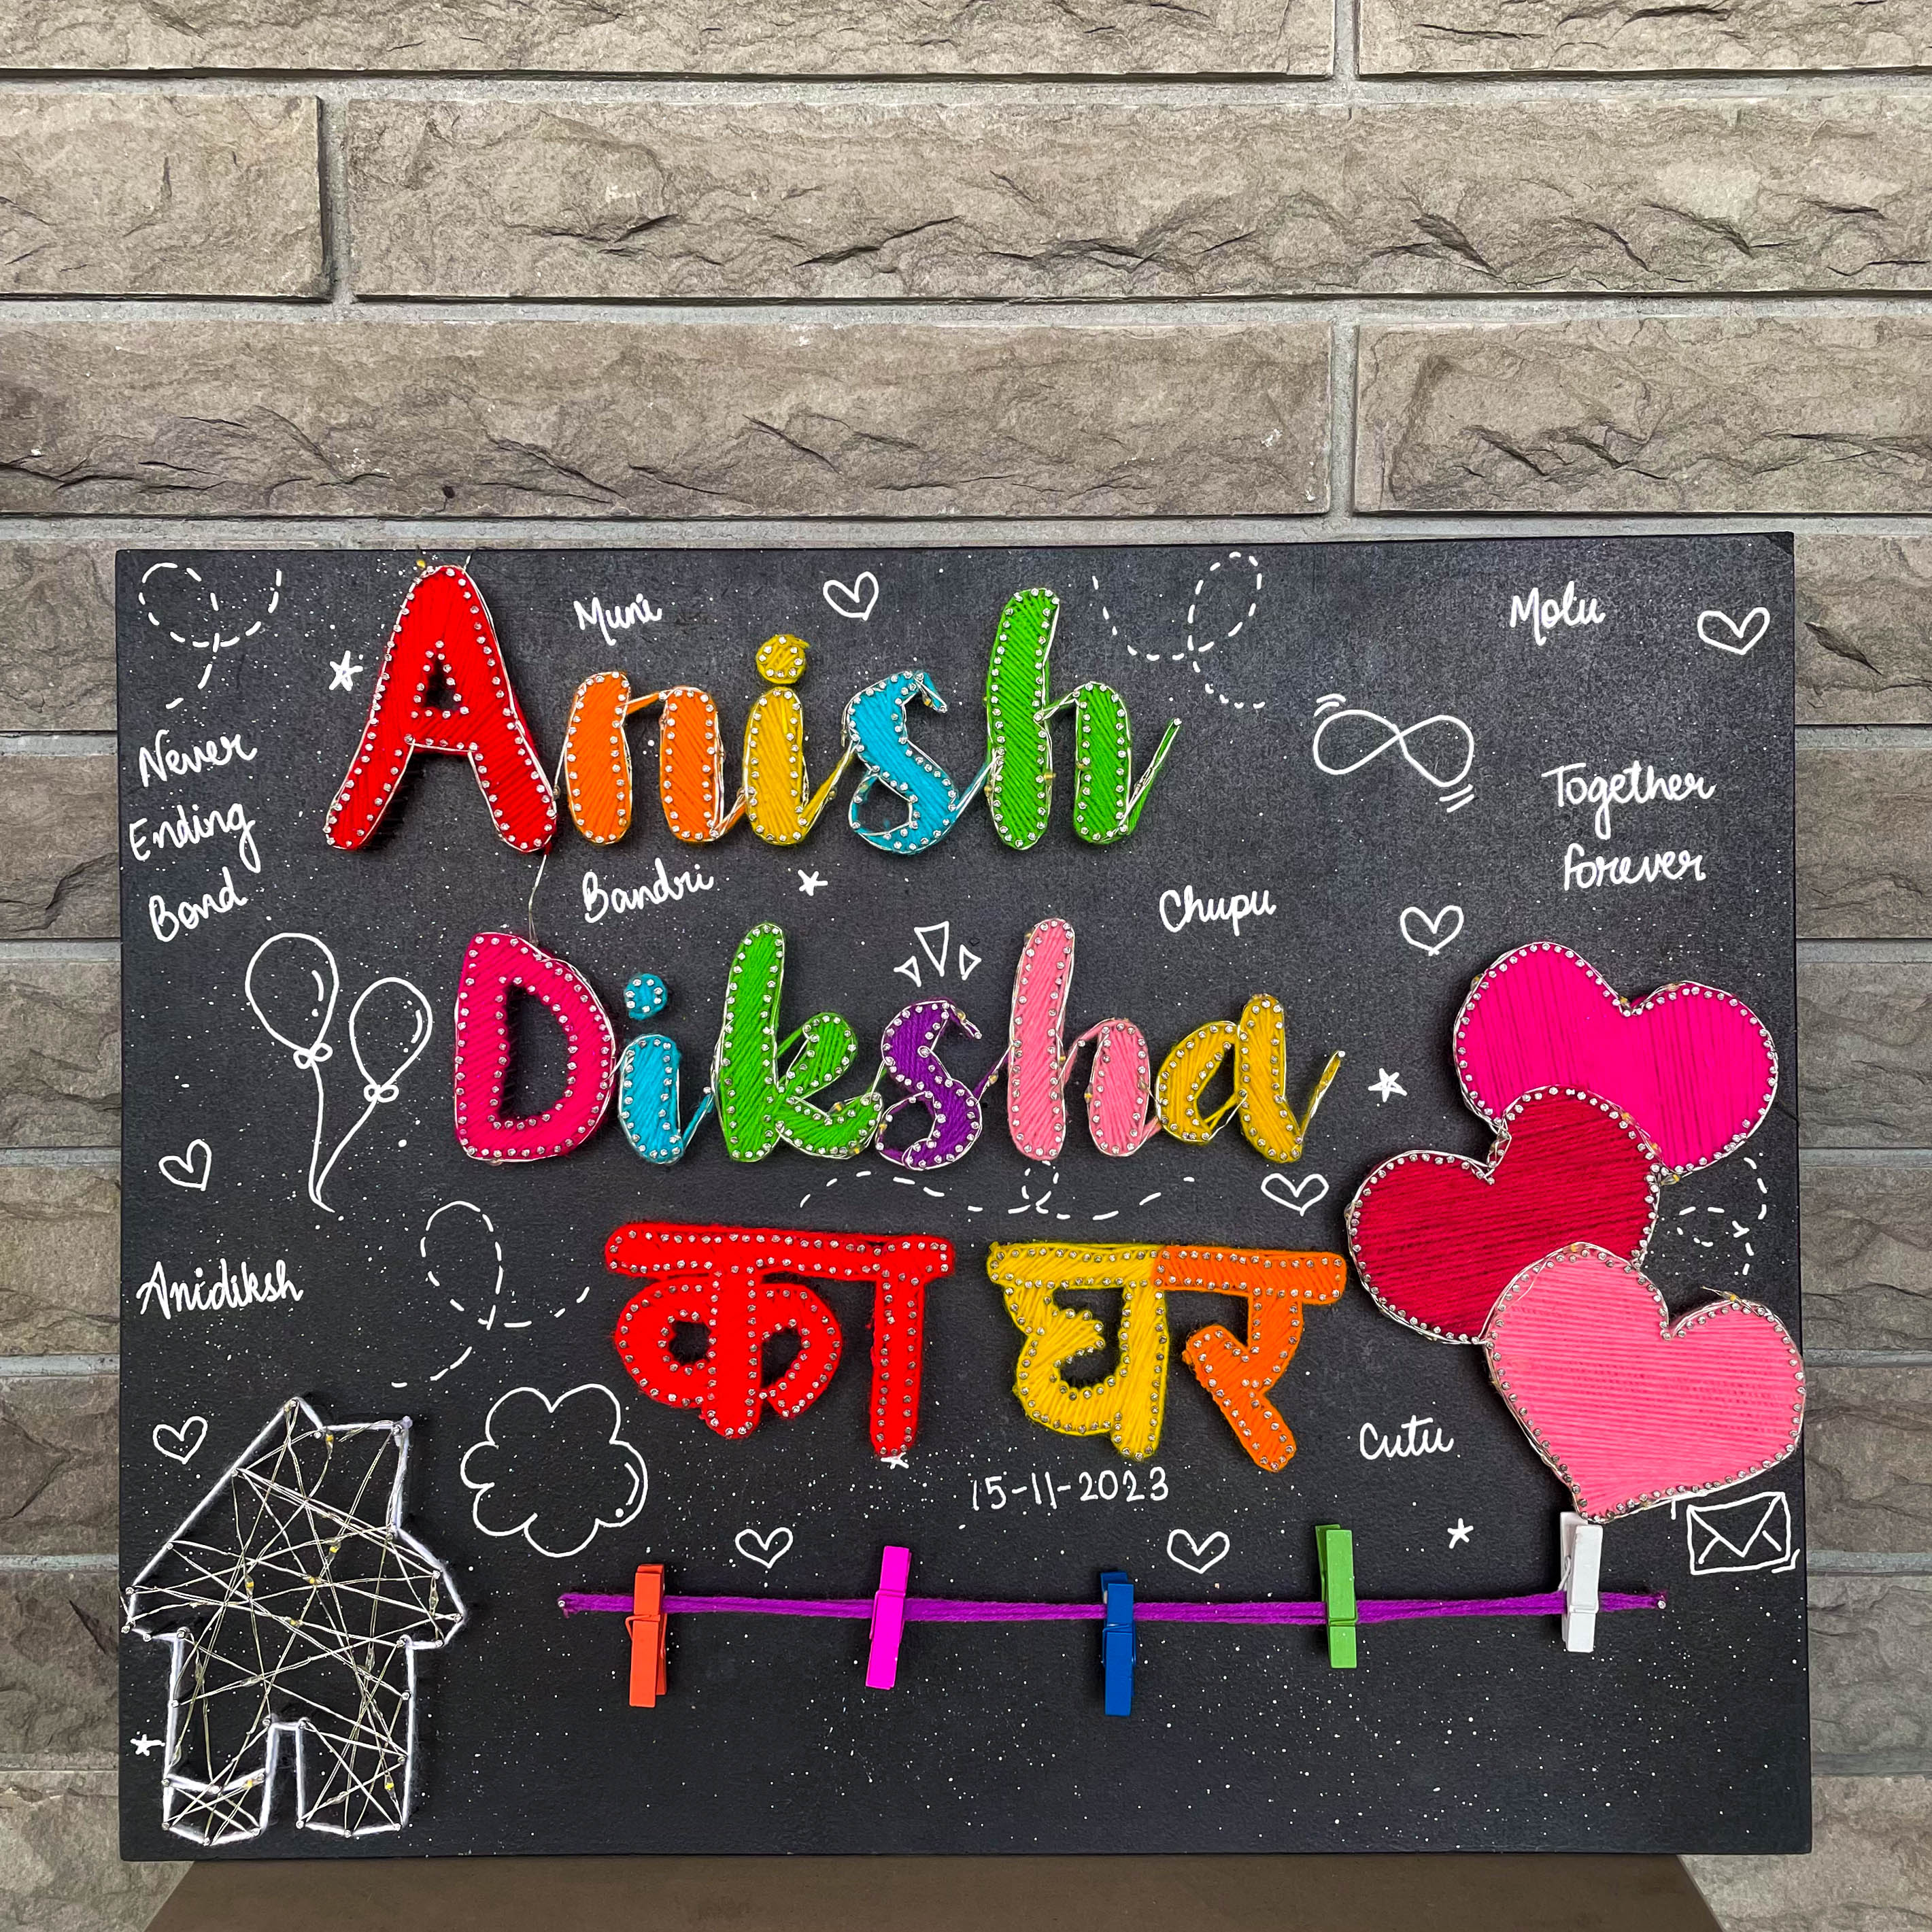 Muni
Molu
Anish
Never
Ending
Bond
Together
forever
Bandri
Chupu
Diksha
Anidiksh
का घर
Cutu
15-11-2023